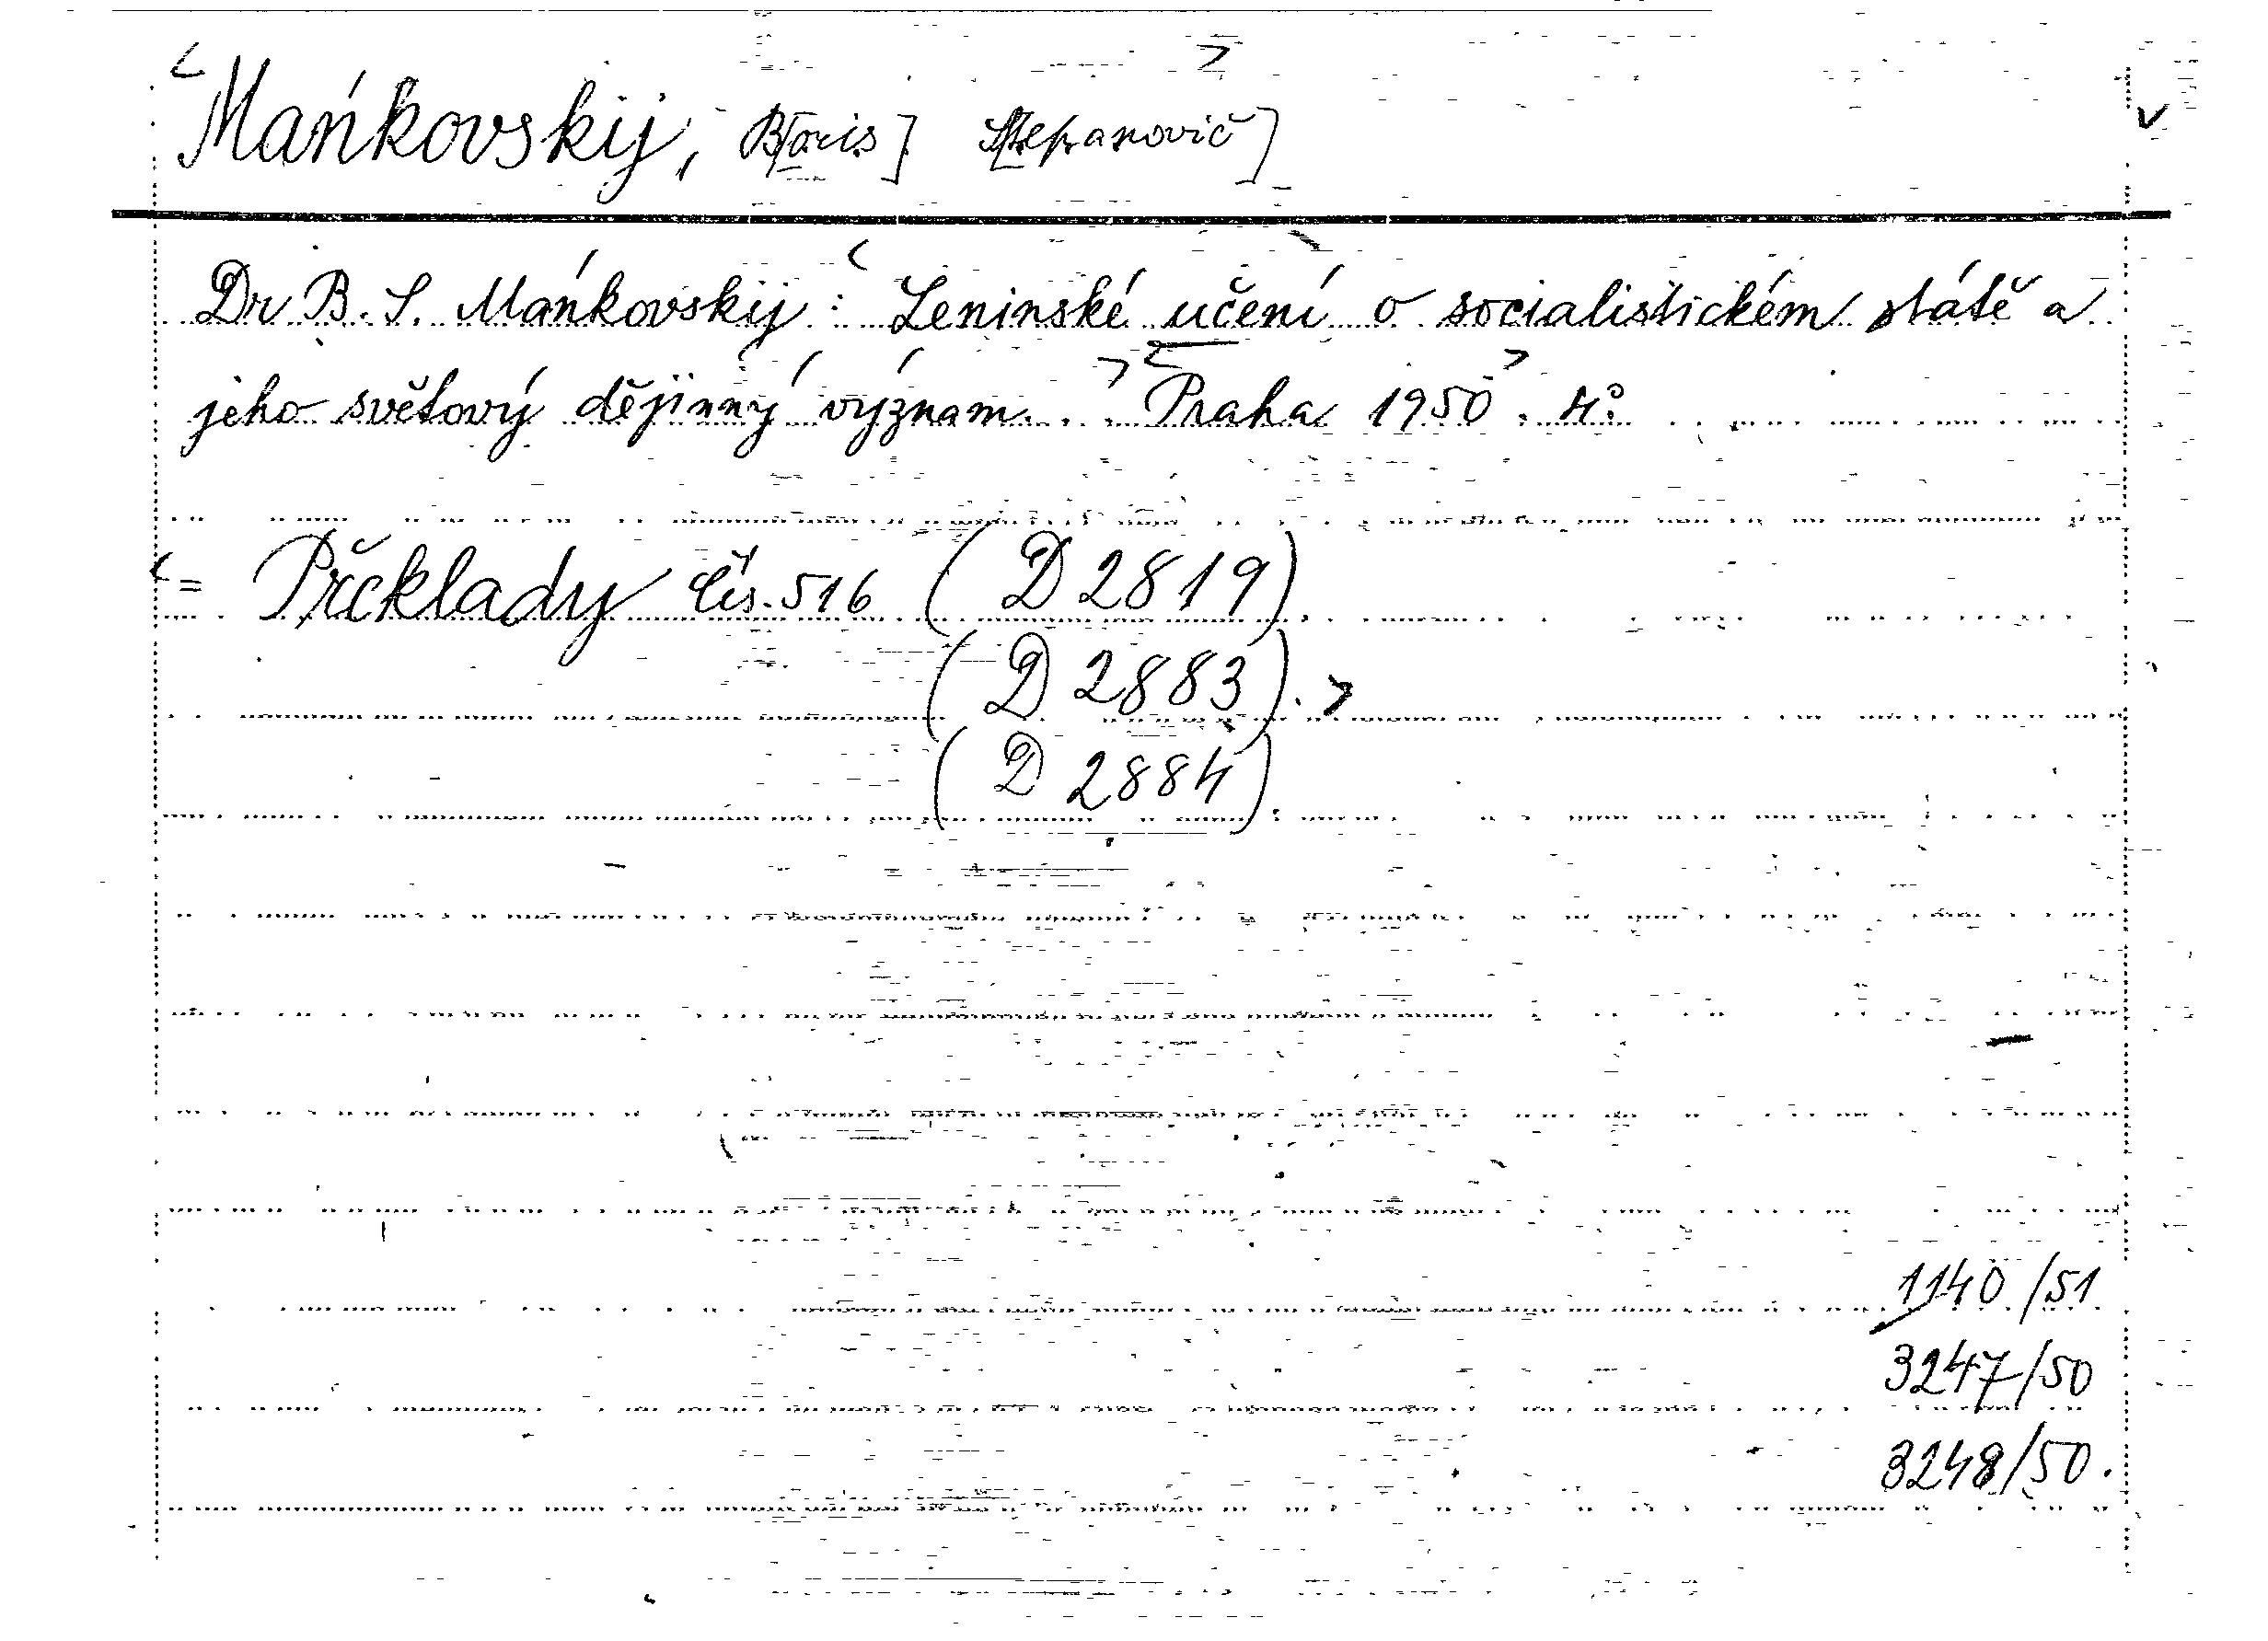 Mańkovskij, B[oris] S[tepanovič]
Dr B. S. Mańkovskij: Leninské učení o socialistickém státě a
jeho světový dějinný význam... Praha 1950. 4°.
= Překlady čís. 516 (D 2819).
(D 2883).
(D 2884).
1140/51.
3247/50
3248/50.